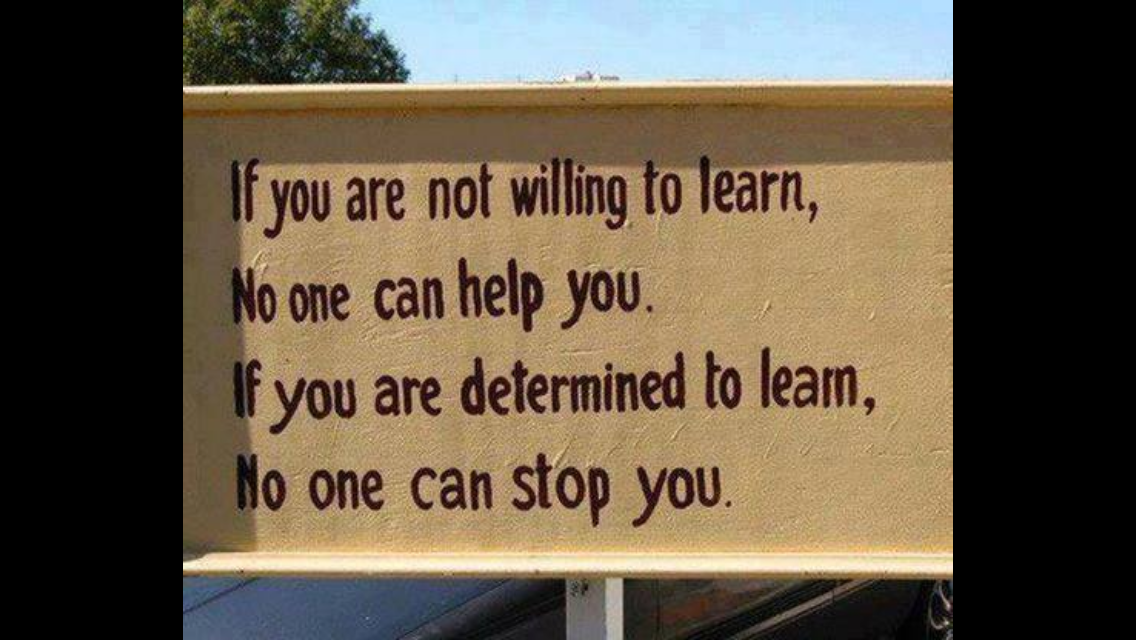 If you are not willing to learn,
No one can help you.
If you are determined to learn,
No one can stop you.